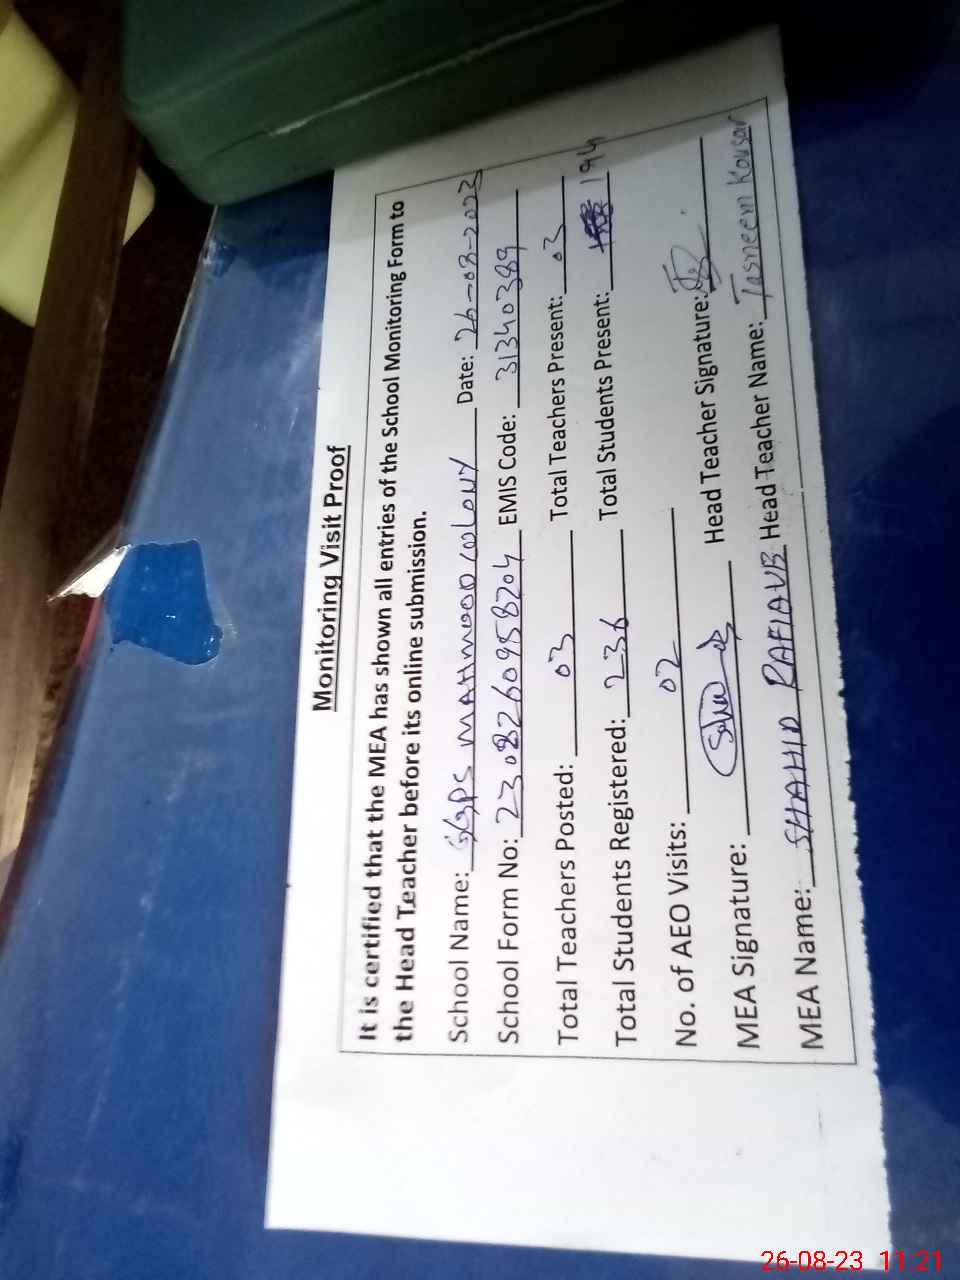 Monitoring Visit Proof
It is certified that the MEA has shown all entries of the School Monitoring Form to
the Head Teacher before its online submission.
School Name: GGPS MAHMOOD COLONY Date: 26-08-2023
School Form No: 2308260958204 EMIS Code: 31340389
Total Teachers Posted: 03 Total Teachers Present: 03
Total Students Registered: 236 Total Students Present: 194
No. of AEO Visits: 02
MEA Signature: Head Teacher Signature:
MEA Name: SHAHID RAFIAUB Head Teacher Name: Tasneem Kousar
26-08-23 11:21